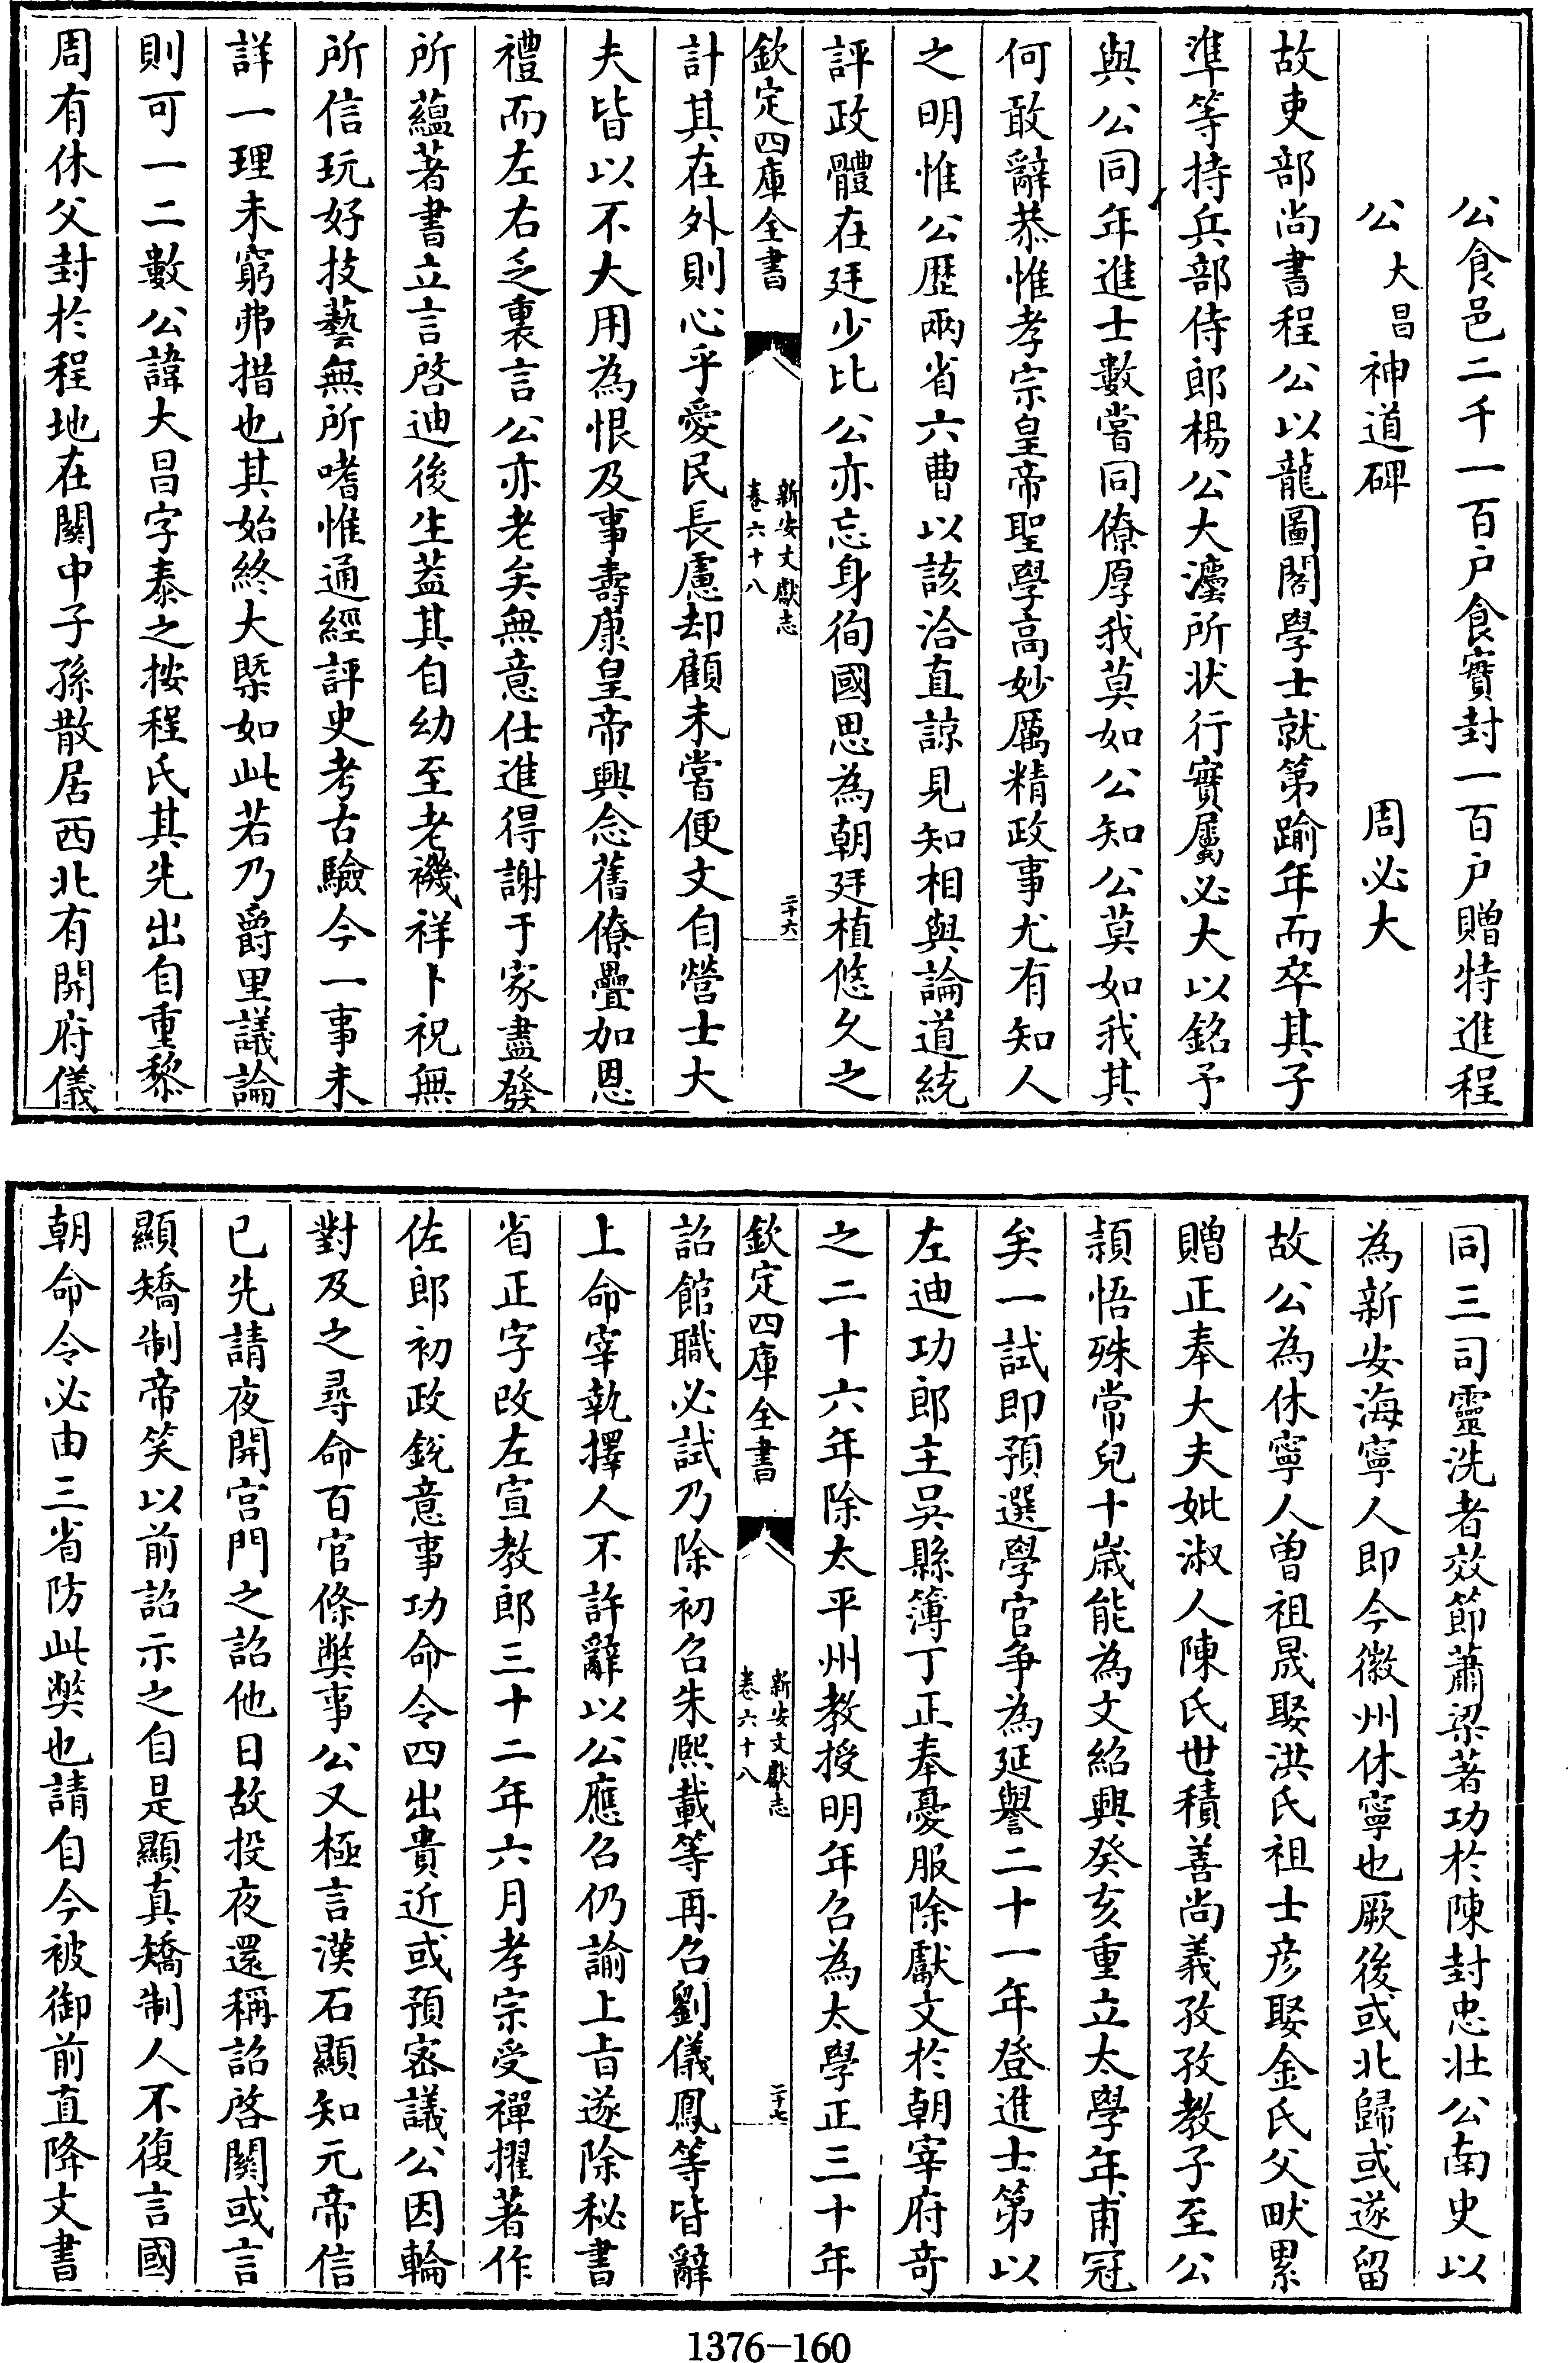 公食邑二千一百户食實封一百户贈特進程
公大昌神道碑 周必大
故吏部尚書程公以龍圖閣學士就第踰年而卒其子
準等持兵部侍郎楊公大灋所狀行實屬必大以銘予
與公同年進士數嘗同僚厚我莫如公知公莫如我其
何敢辭恭惟孝宗皇帝聖學高妙厲精政事尤有知人
之明惟公歷兩省六曹以該洽直諒見知相與論道統
評政體在廷少比公亦忘身徇國思為朝廷植悠久之
欽定四庫全書
新安文獻志
卷六十八
二十六
計其在外則心乎愛民長慮却顧未嘗便文自營士大
夫皆以不大用為恨及事壽康皇帝興念舊僚疊加恩
禮而左右乏裏言公亦老矣無意仕進得謝于家盡發
所蘊著書立言啓迪後生葢其自幼至老禨祥卜祝無
所信玩好技藝無所嗜惟通經評史考古驗今一事未
詳一理未窮弗措也其始終大槩如此若乃爵里議論
則可一二數公諱大昌字泰之按程氏其先出自重黎
周有休父封於程地在關中子孫散居西北有開府儀
同三司靈洗者效節蕭梁著功於陳封忠壯公南史以
為新安海寧人即今徽州休寧也厥後或北歸或遂留
故公為休寧人曽祖晟娶洪氏祖士彦娶金氏父畎累
贈正奉大夫妣淑人陳氏世積善尚義孜孜教子至公
頴悟殊常兒十嵗能為文紹興癸亥重立太學年甫冠
矣一試即預選學官争為延譽二十一年登進士第以
左迪功郎主吳縣簿丁正奉憂服除獻文於朝宰府竒
之二十六年除太平州教授明年召為太學正三十年
欽定四庫全書
新安文獻志
卷六十八
二十七
詔館職必試乃除初召朱熈載等再召劉儀鳳等皆辭
上命宰執擇人不許辭以公應召仍諭上㫖遂除秘書
省正字改左宣教郎三十二年六月孝宗受禪擢著作
佐郎初政鋭意事功命令四出貴近或預宻議公因輪
對及之尋命百官條獘事公又極言漢石顯知元帝信
已先請夜開宫門之詔他日故投夜還稱詔啓關或言
顯矯制帝笑以前詔示之自是顯真矯制人不復言國
朝命令必由三省防此獘也請自今被御前直降文書
1376-160